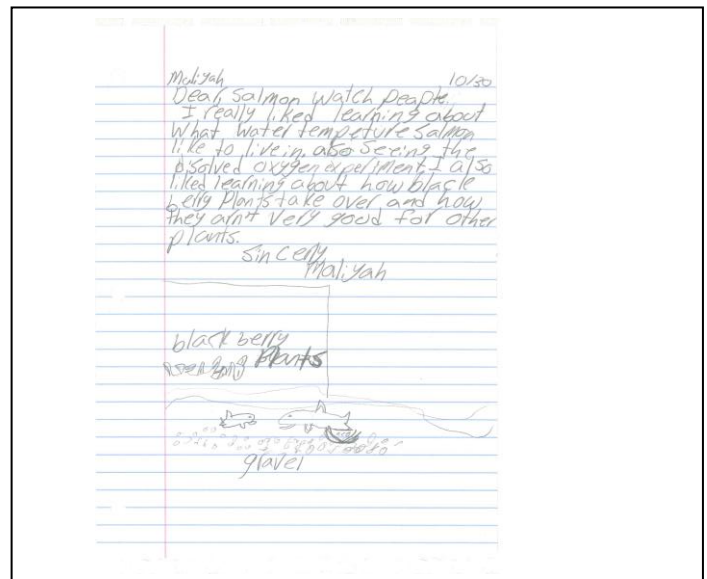 Maliyah 10/30
Dear, Salmon Watch People.
I really liked learning about
What water tempeture salmon
like to live in. also seeing the
disolved oxygen experiment. I also
liked learning about how black
berry Plants take over and how
they arn't very good for other
plants.
Sincerly
Maliyah
black berry
Plants
gravel